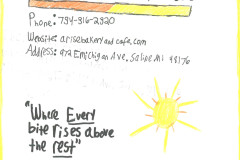 Phone: 734-316-2920
Website: arisebakeryandcafe.com
Address: 472 E Michigan Ave, Saline MI 48176
"Where Every
bite rises above
the rest"